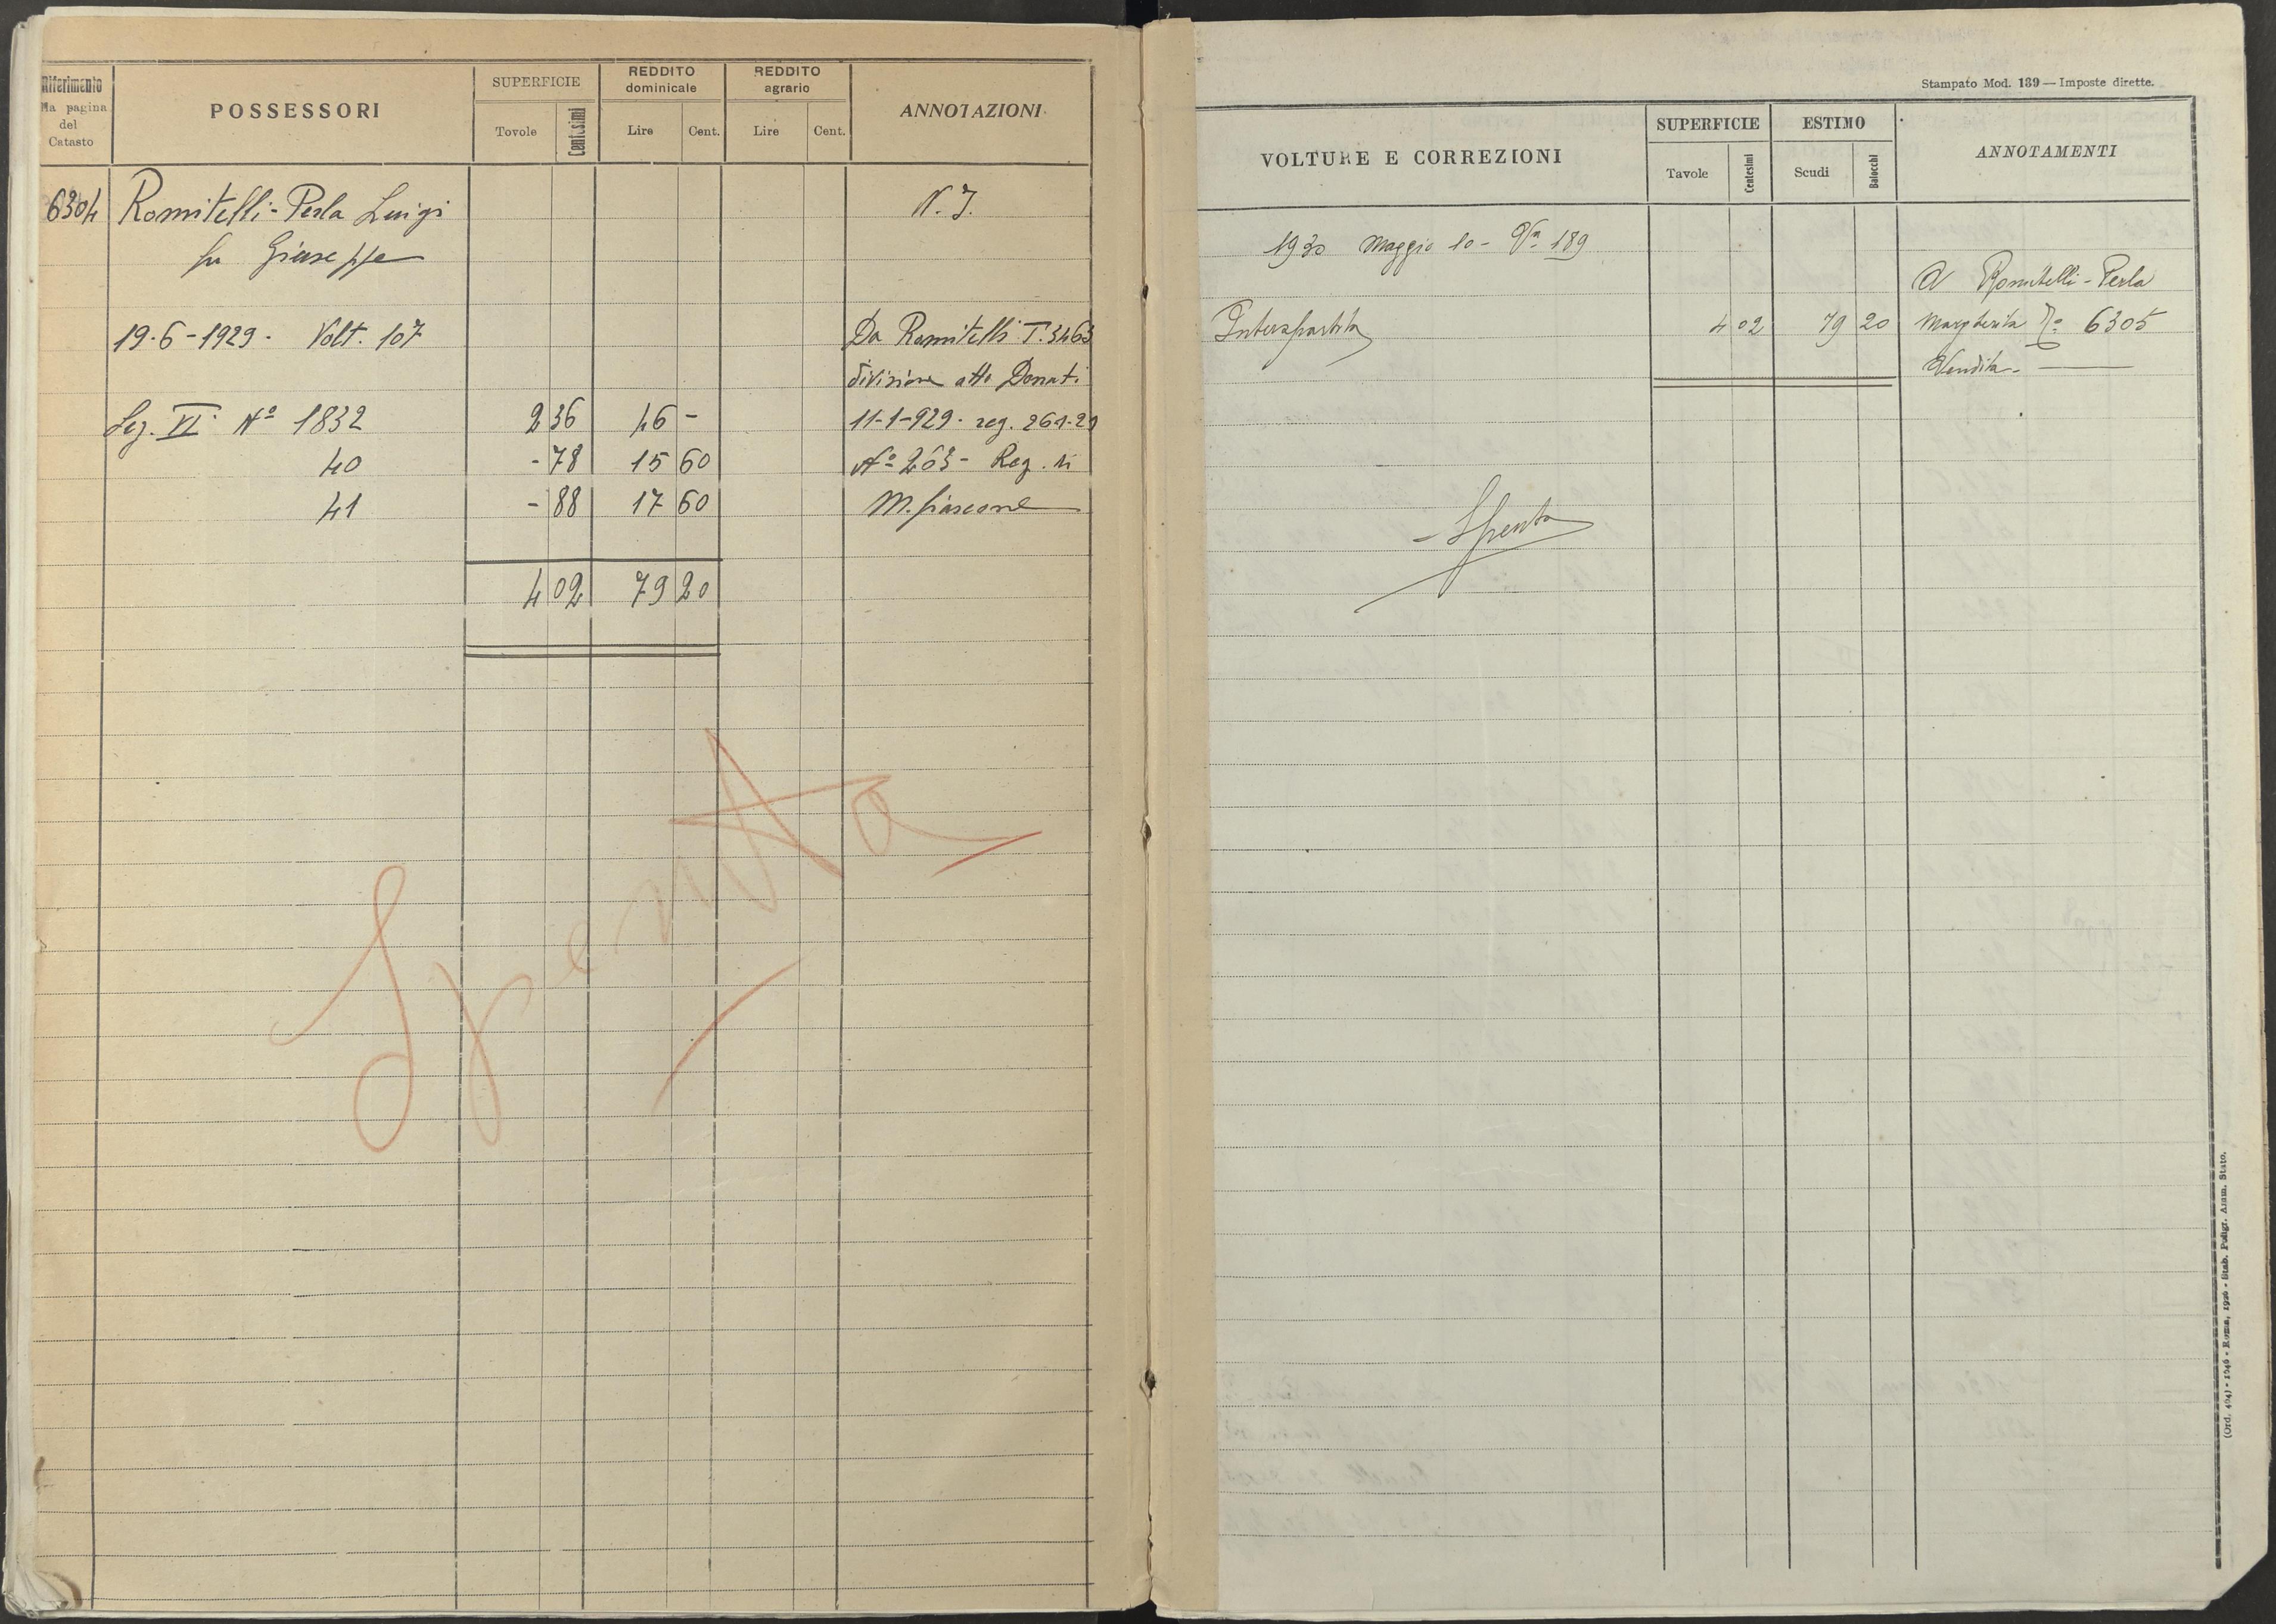 Riferimento
alla pagina
del
Catasto
POSSESSORI
SUPERFICIE
Tovole
Centesimi
REDDITO
dominicale
Lire
Cent.
REDDITO
agrario
Lire
Cent.
ANNOTAZIONI
6304 Romitelli-Perla Luigi
fu Giuseppe
N. I.
19-6-1929- Volt. 107
Da Romitelli T. 3463
divisione atto Donati
Sez. VI Nº 1832 2 36 46 - 11-1-929- reg. 261-29
40 - 78 15 60 Nº 263- Rog. in
41 - 88 17 60 M. Giascone
4 02 79 20
Spenta
Stampato Mod. 139 — Imposte dirette.
VOLTURE E CORREZIONI
SUPERFICIE
Tavole
Centesimi
ESTIMO
Scudi
Baiocchi
ANNOTAMENTI
1930 Maggio 10- Vra 189
A Romitelli-Perla
Interapartita 4 02 79 20 Margherita 6305
Vendita-
- Spenta
(Ord. 494) - 1046 - Roma, 1926 - Stab. Poligr. Amm. Stato.